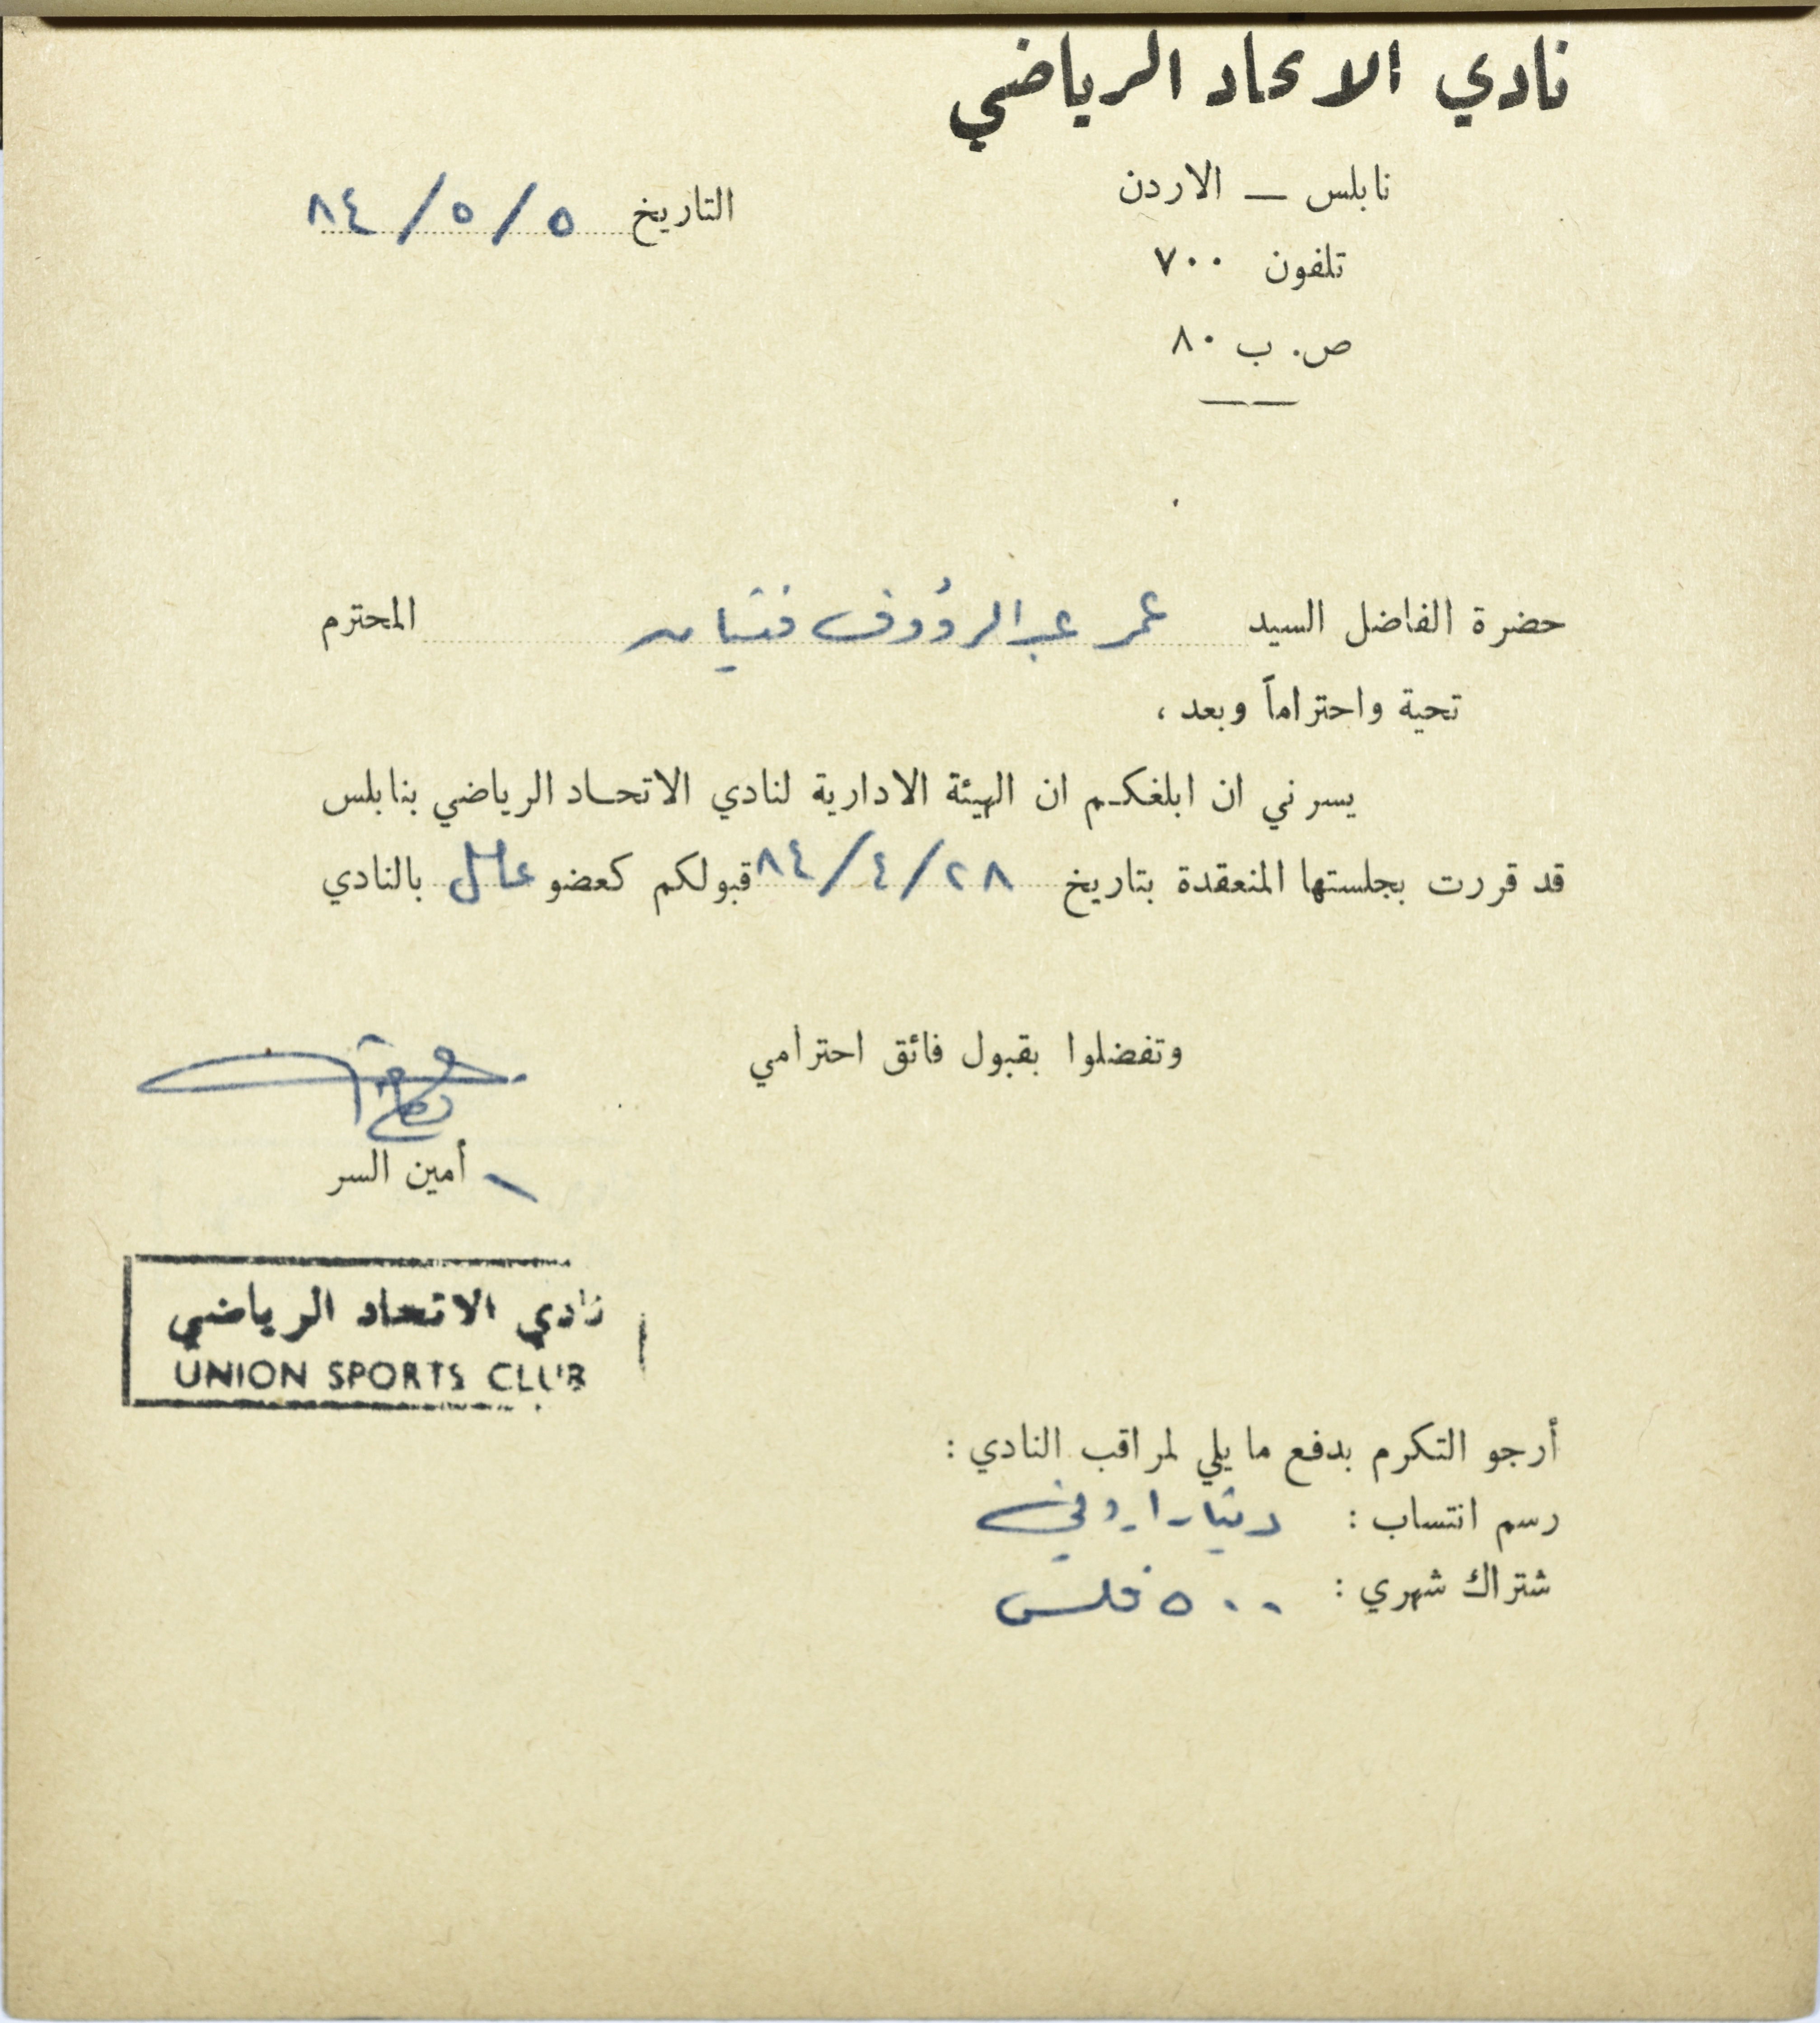 نادي الاتحاد الرياضي
نابلس — الاردن
التاريخ ٥ / ٥ / ٨٤
تلفون ٧٠٠
ص. ب ٨٠
حضرة الفاضل السيد عمر عبد الرؤوف فتيان المحترم
تحية واحتراماً وبعد ،
يسرني ان ابلغكم ان الهيئة الادارية لنادي الاتحاد الرياضي بنابلس
قد قررت بجلستها المنعقدة بتاريخ ٢٨ / ٤ / ٨٤ قبولكم كعضو عامل بالنادي
وتفضلوا بقبول فائق احترامي
أمين السر
نادي الاتحاد الرياضي
UNION SPORTS CLUB
أرجو التكرم بدفع ما يلي لمراقب النادي :
رسم انتساب : دينار اردني
شتراك شهري : ٥٠٠ فلس